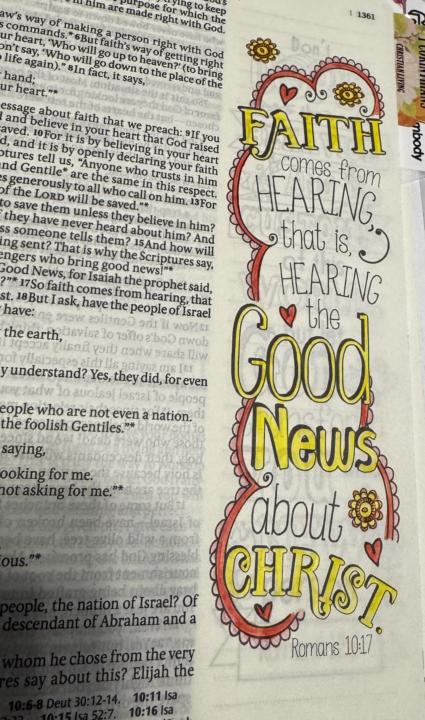 purpose for which the
him are made right with God.
1361
law's way of making a person right with God
s commands." 6But faith's way of getting right
ur heart, 'Who will go up to heaven?' (to bring
on't say, 'Who will go down to the place of the
life again)." 8In fact, it says,
hand;
ur heart."*
essage about faith that we preach: 9If you
and believe in your heart that God raised
aved. 10For it is by believing in your heart
d, and it is by openly declaring your faith
ptures tell us, "Anyone who trusts in him
nd Gentile* are the same in this respect.
es generously to all who call on him. 13For
of the LORD will be saved."*
to save them unless they believe in him?
they have never heard about him? And
ss someone tells them? 15And how will
ing sent? That is why the Scriptures say,
engers who bring good news!"*
Good News, for Isaiah the prophet said,
?"* 17So faith comes from hearing, that
st. 18But I ask, have the people of Israel
have:
the earth,
y understand? Yes, they did, for even
eople who are not even a nation.
the foolish Gentiles."*
saying,
ooking for me.
not asking for me."*
ous."*
people, the nation of Israel? Of
descendant of Abraham and a
whom he chose from the very
res say about this? Elijah the
10:6-8 Deut 30:12-14. 10:11 Isa
10:15 Isa 52:7. 10:16 Isa
FAITH
comes from
HEARING,
that is,
HEARING
the
Good
News
about
CHRIST.
Romans 10:17
CHRISTIAN LIVING
nbody